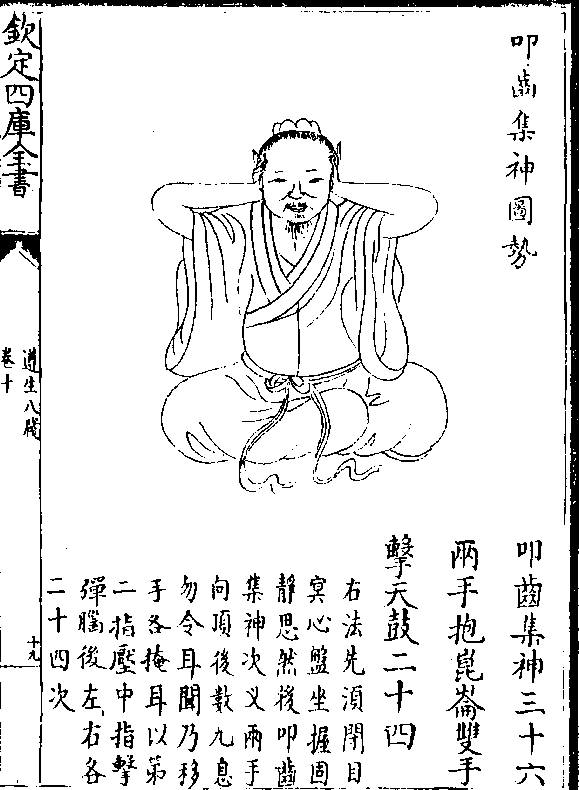 叩齒集神圖勢
叩齒集神三十六
兩手抱崑崙雙手
擊天鼓二十四
右法先湏閉目
㝠心盤坐握固
静思然後叩齒
集神次叉兩手
向頂後數九息
勿令耳聞乃移
手各掩耳以第
二指壓中指擊
彈腦後左右各
二十四次
欽定四庫全書
遵生八牋
卷十
十九